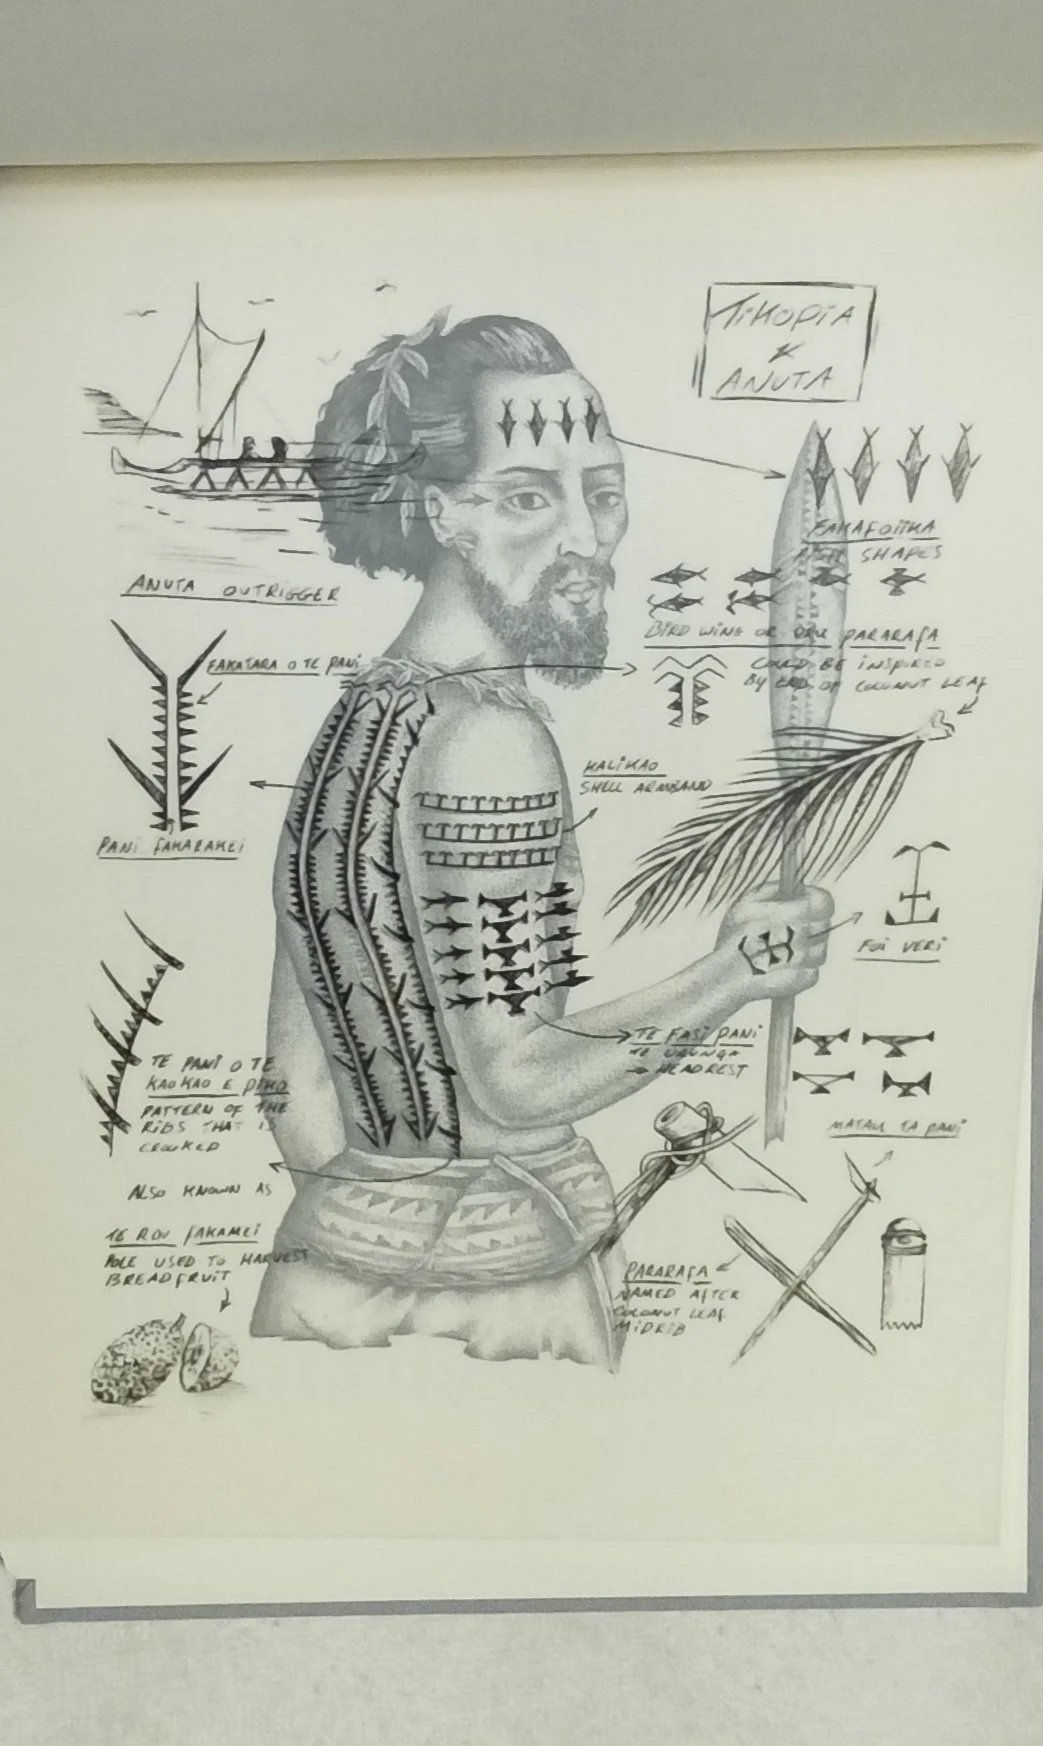 TIKOPIA
&
ANUTA
ANUTA OUTRIGGER
FAKATARA O TE PANI
PANI FAKARAKEI
FAKAFOIIKA
FISH SHAPES
BIRD WING OR PARARAFA
COULD BE INSPIRED
BY END OF COCONUT LEAF
KALIKAO
SHELL ARMBAND
FOI VERI
TE FASI PANI
TE URUNGA
→ HEADREST
MATAU TA PANI
TE PANI O TE
KAOKAO E PIKO
PATTERN OF THE
RIBS THAT IS
CROOKED
ALSO KNOWN AS
TE ROU FAKAMEI
POLE USED TO HARVEST
BREADFRUIT
PARARAFA
NAMED AFTER
COCONUT LEAF
MIDRIB